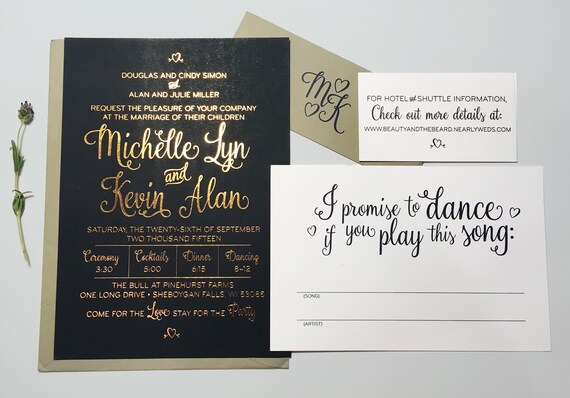 DOUGLAS AND CINDY SIMON
and
ALAN AND JULIE MILLER
REQUEST THE PLEASURE OF YOUR COMPANY
AT THE MARRIAGE OF THEIR CHILDREN
Michelle Lyn
and
Kevin Alan
SATURDAY, THE TWENTY-SIXTH OF SEPTEMBER
TWO THOUSAND FIFTEEN
Ceremony Cocktails Dinner Dancing
3:30 5:00 6:15 8-12
THE BULL AT PINEHURST FARMS
ONE LONG DRIVE • SHEBOYGAN FALLS, WI 53085
COME FOR THE Love STAY FOR THE Party
M
K
FOR HOTEL and SHUTTLE INFORMATION,
Check out more details at:
WWW.BEAUTYANDTHEBEARD.NEARLYWEDS.COM
I promise to dance
if you play this song:
(SONG)
(ARTIST)